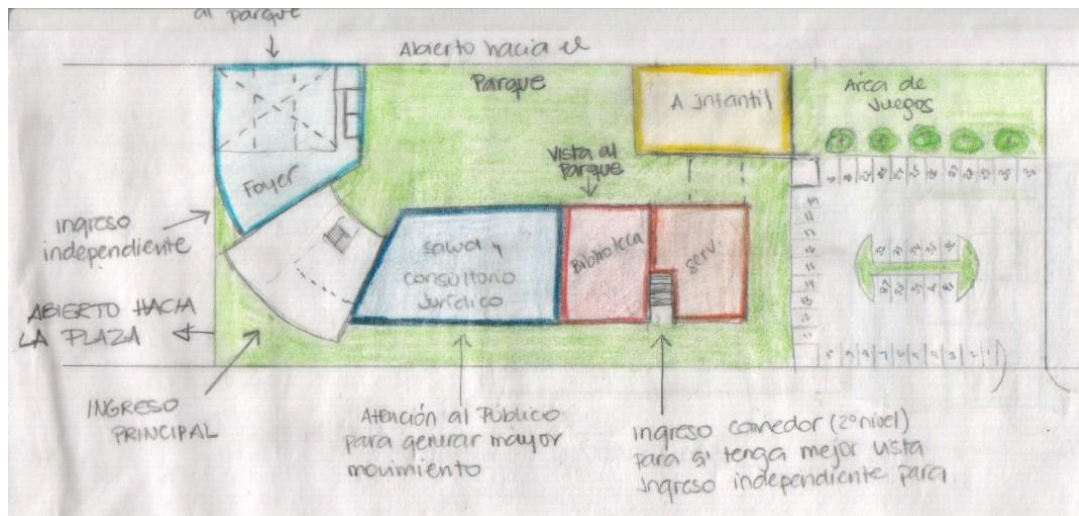 al parque
Abierto hacia el
Parque
A Infantil
Area de
Juegos
Vista al
Parque
Foyer
Ingreso
independiente
Salud y
consultorio
Jurídico
Biblioteca
serv.
ABIERTO HACIA
LA PLAZA
INGRESO
PRINCIPAL
Atención al Público
para generar mayor
movimiento
Ingreso comedor (2º nivel)
para q' tenga mejor vista
Ingreso independiente para